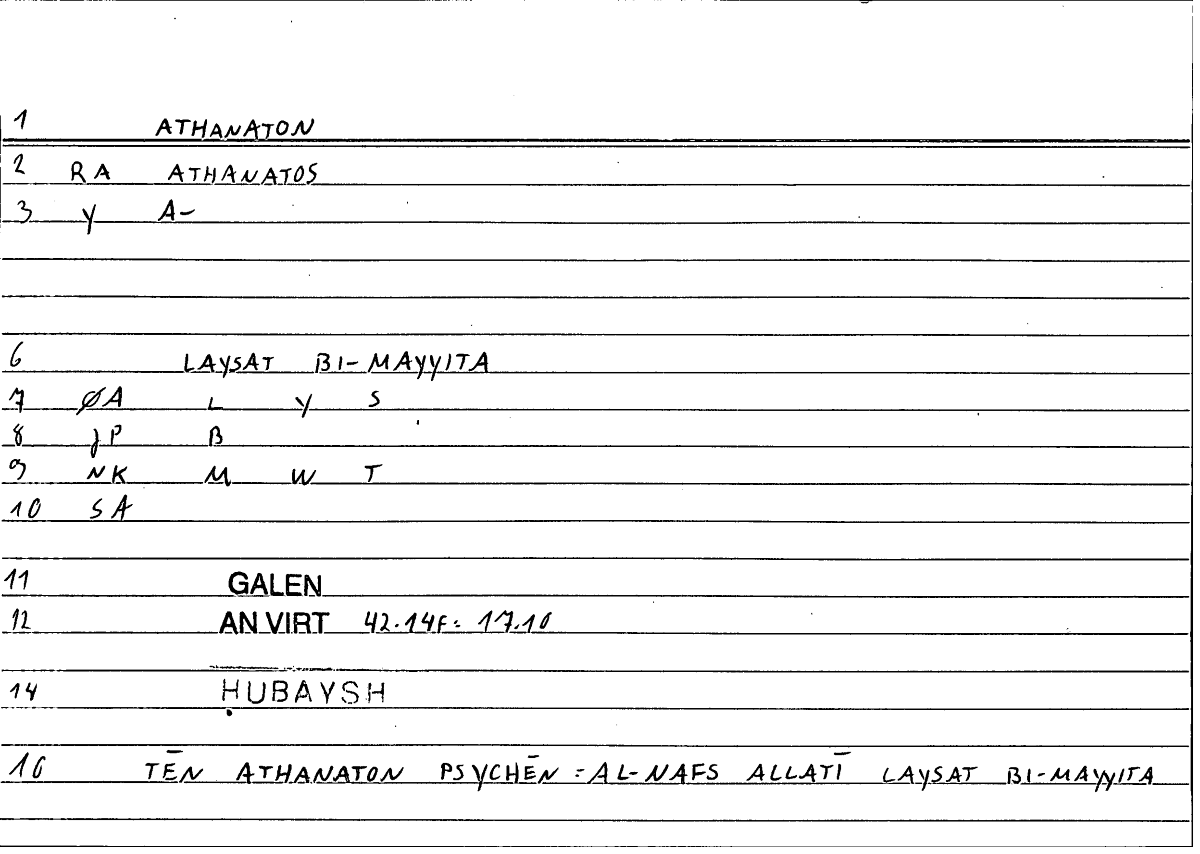 1 ATHANATON
2 RA ATHANATOS
3 Y A-
6 LAYSAT BI-MAYYITA
7 ØA L Y S
8 JP B
9 NK M W T
10 SA
11 GALEN
12 AN VIRT 42.14F: 17.10
14 ḤUBAYSH
16 TĒN ATHANATON PSYCHĒN = AL-NAFS ALLATĪ LAYSAT BI-MAYYITA